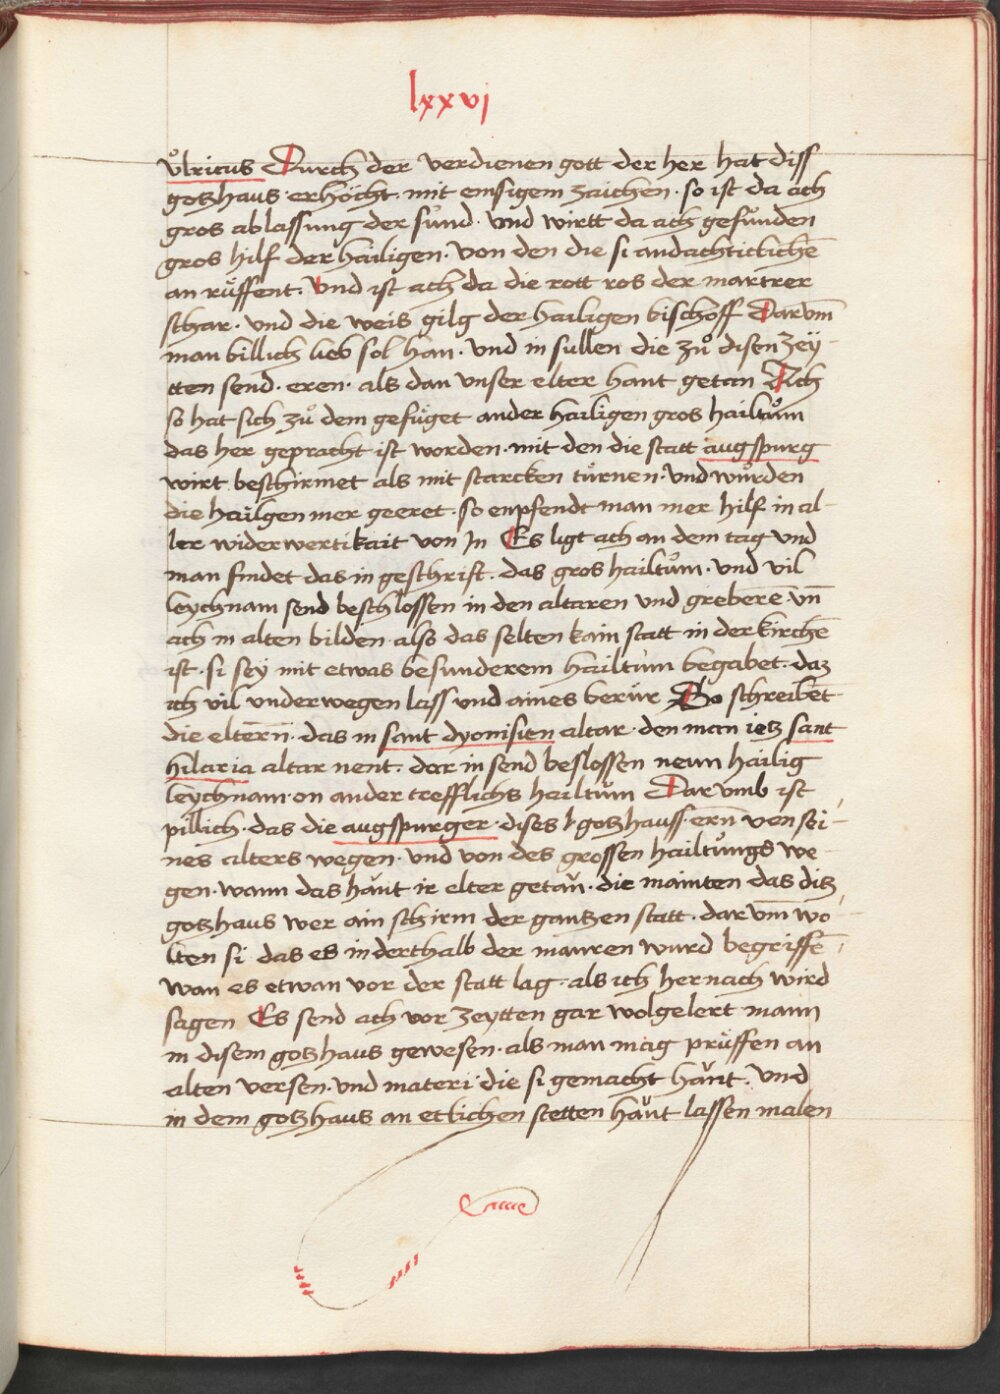 lxxvi
vͦlricus Durch der verdienen gott der her hat diss
gotzhaus · erhöcht · mit emsigem zaichen · so ist da ach
gros ablassung der sünd · vnd wirtt da ach gefunden
gros hilf der hailigen · von den die si andachticlichē
an rüffent. Vnd ist ach da die rott ros der martrer
schar · vnd die weis gilg der hailigen bischoff Darvm̄
man billich lieb sol han · vnd in sullen die zuͦ disen zeÿ-
tten send · eren · als dan vnser elter hant getan Ach
so hat sich zuͦ dem gefüget ander hailigen gros hailtuͦm
das her gepracht ist worden · mit den die statt augspurg
wirt beschirmet als mit starcken türnen · Vnd wurden
die hailgen mer geeret · so enpfendt man mer hilf in al-
ler widerwertikait von In Es ligt ach an dem tag vnd
man findet das in geschrift · das gros hailtuͦm · vnd vil
leychnam send beschlossen in den altaren vnd greberē · vn̄
ach in alten bilden · also das selten kain statt in der kirchē
ist · si sey mit etwas besunderem hailtum begabet · daz
ich vil underwegen lass vnd aines berür So schreibēt
die elterñ · das in sant dyonisien altar · den man ietz sant
hilaria altar nent · dar in send beslossen neun hailig
leychnam · on ander trefflichs hailtuͦm Dar vmb ist
pillich · das die augspurger · dises l · gotzhauss · ern̄ von sei-
nes alters wegen · vnd von des grossen hailtungs we-
gen · wann das hänt ir elter getan · die mainten das ditz
gotzhaus wer ain schirm der gantzen statt · dar vm̄ wo-
lten si das es inderthalb der mauren wurd begriffē
wan es etwan vor der statt lag · als ich hernach wird
sagen Es send ach vor zeytten gar wolgelert mann
in disem gotzhaus gewesen · als man mag prüffen an
alten versen · vnd materi die si gemacht hänt · Vnd
in dem gotzhaus an etlichen stetten hänt lassen malen